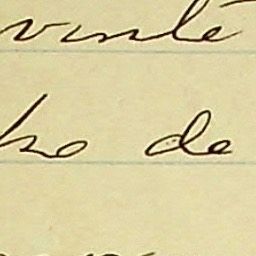 vinte
ho de